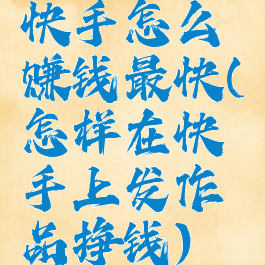 快手怎么
赚钱最快(
怎样在快
手上发作
品挣钱)